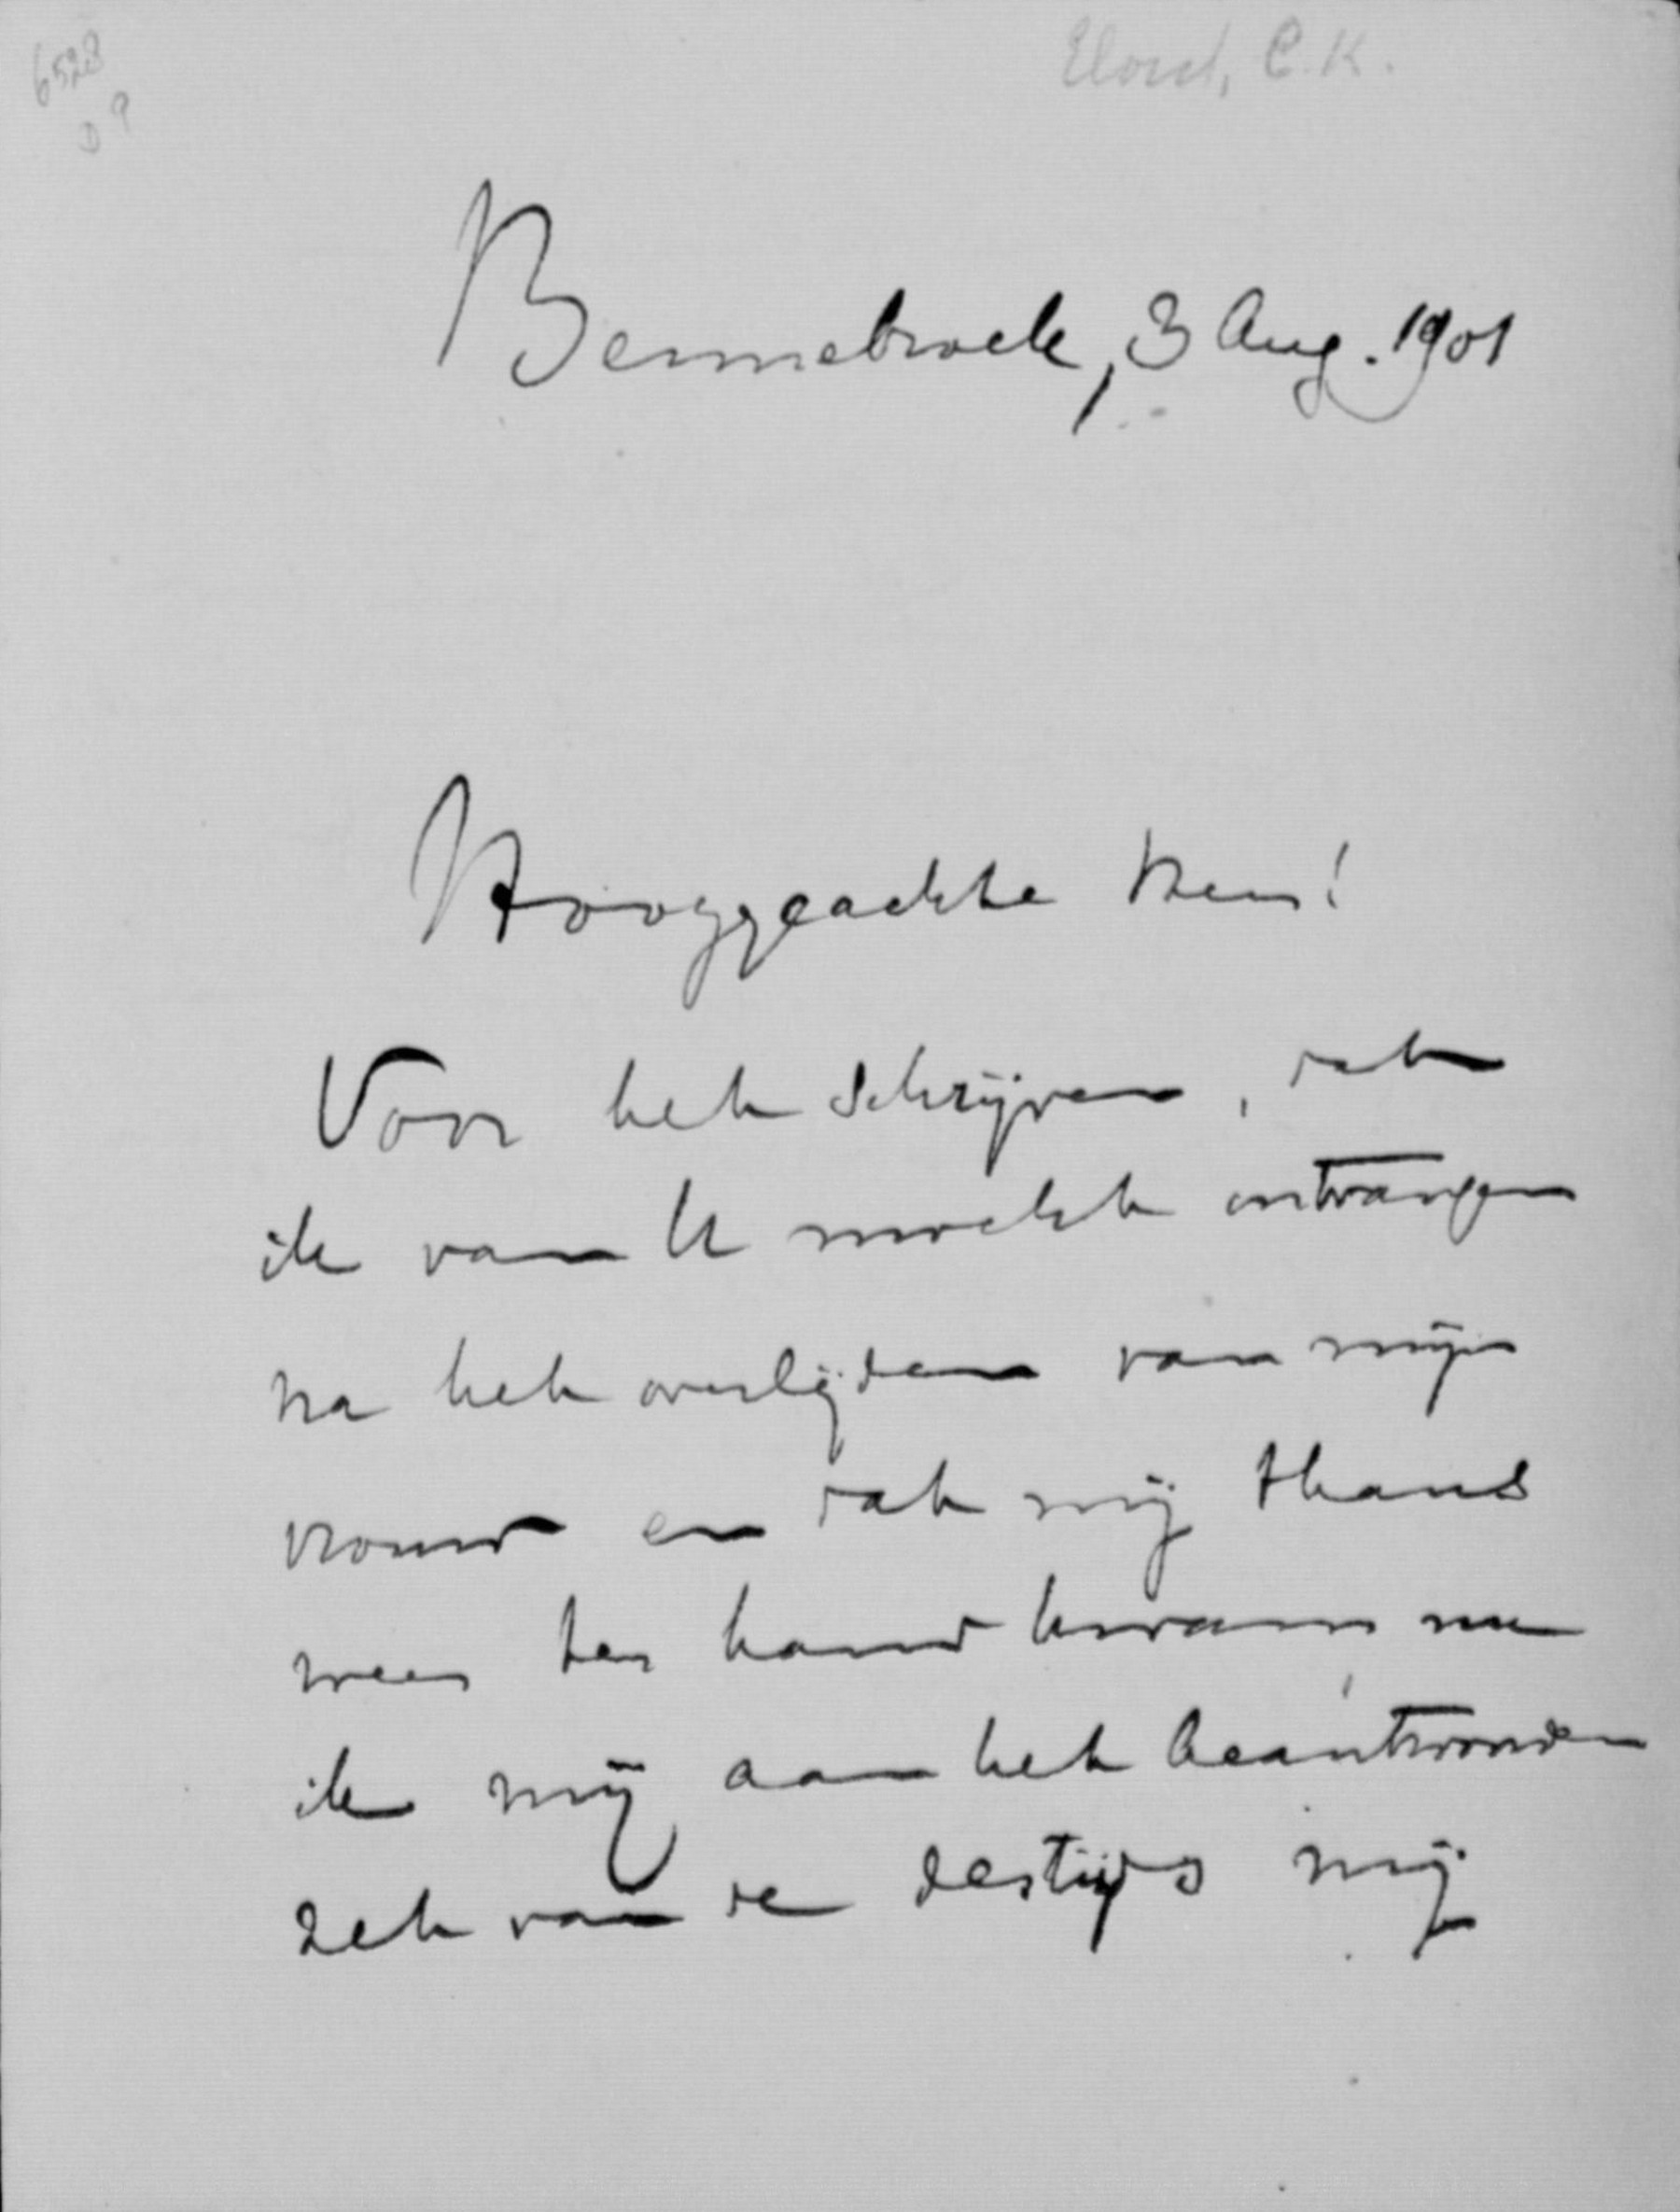 6528
D 9
Elout, C.K.
Bennebroek, 3 Aug. 1901
Hooggeachte Heer!
Voor het schrijven, dat
ik van U mocht ontvangen
na het overlijden van mijn
vrouw en dat mij thans
weer ter hand kwam nu
ik mij aan het beantwoorden
zet van de destijds mij